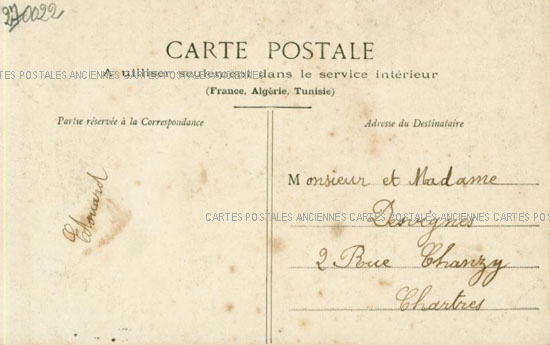 270022
CARTE POSTALE
A utiliser seulement dans le service intérieur
CARTES POSTALES ANCIENNES CARTES POSTALES ANCIENNES
(France, Algérie, Tunisie)
Partie réservée à la Correspondance
Adresse du Destinataire
Edouard
Monsieur et Madame
Desvignes
CARTES POSTALES ANCIENNES CARTES POSTALES ANCIENNES CARTES
2 Rue Chanzy
Chartres